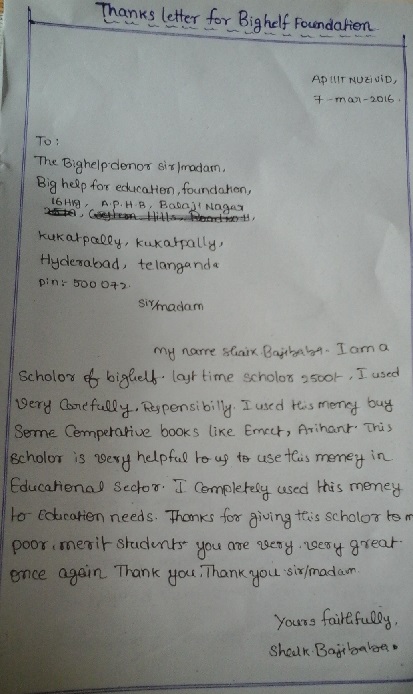 Thanks letter for Bighelf Foundation
AP IIIT NUZIVID,
7-mar-2016.
To:
The Bighelp donor sir/madam,
Big help for education, foundation,
16 HIG, A.P.H.B, Balaji Nagar
Kukatpally, Kukatpally,
Hyderabad, telangana
pin:- 500 072.
sir/madam
my name Shaik.Bajibaba. I am a
Scholor of bighelf. last time scholor 2500/-, I used
very Carefully, Responsibilly. I used this money buy
Some Competative books like Emcet, Arihant. This
scholor is very helpful to us to use this money in
Educational Sector. I Completely used this money
to Education needs. Thanks for giving this scholor to
poor, merit students you are very, very great.
once again Thank you, Thank you sir/madam.
Yours faithfully,
Shaik.Bajibaba.